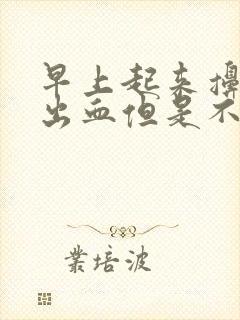 早上起来擤
出血但是不
业培波